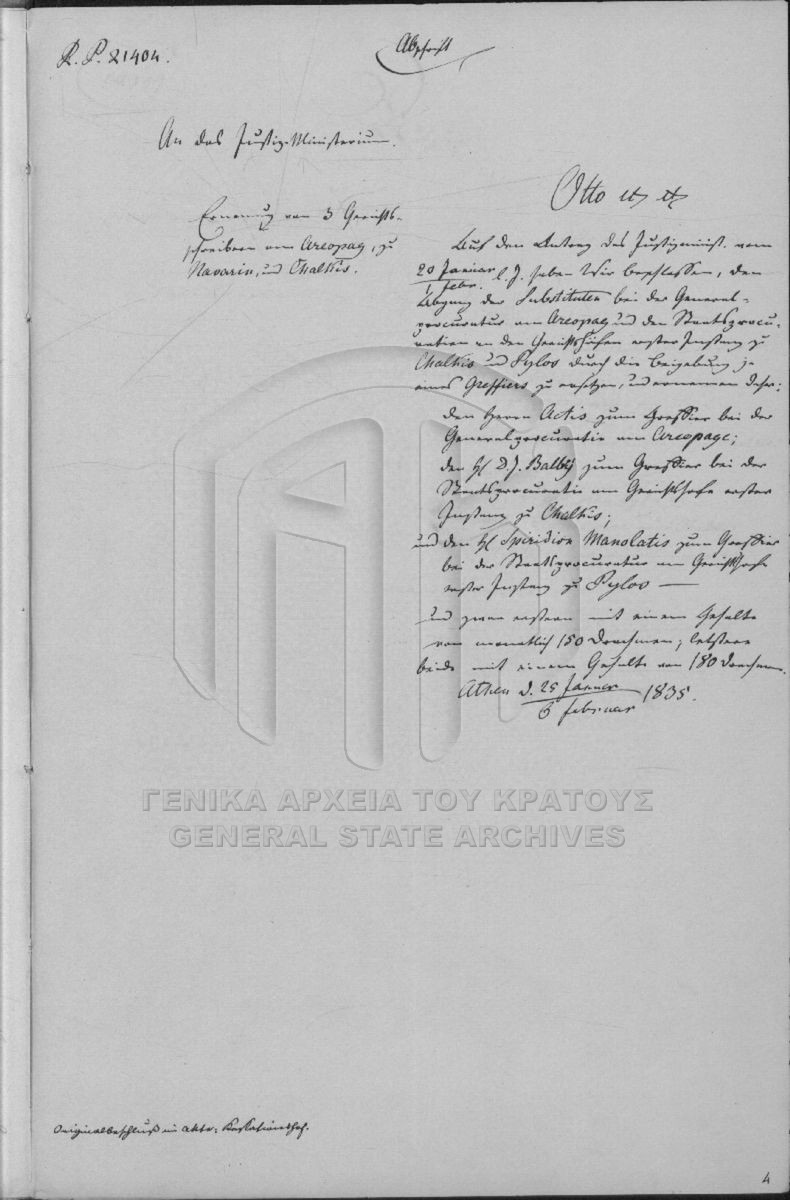 R. P. 21404.
Abschrift
An das Justiz-Ministerium.
Otto etc etc
Ernennung von 3 Gerichts-
schreibern am Areopag, zu
Navarin, und Chalkis.
Auf den Antrag des Justizminist. vom
20 Januar / 1 Febr. l. J. haben Wir beschlossen, den
Abgang der Substituten bei der General-
procuratur am Areopag und den Staatsprocu-
ratien an den Gerichtshöfen erster Instanz zu
Chalkis und Pylos durch die Beigebung je
eines Greffiers zu ersetzen, und ernennen daher:
den Herrn Actis zum Greffier bei der
Generalprocuratie am Areopage;
den H D. J. Balbÿ zum Greffier bei der
Staatsprocuratie am Gerichtshofe erster
Instanz zu Chalkis;
und den H Spiridion Manolatis zum Greffier
bei der Staatsprocuratur am Gerichtshofe
erster Instanz zu Pylos —
und zwar erstern mit einem Gehalte
von monatlich 150 Drachmen; letztere
beide mit einem Gehalte von 180 Drachmen.
Athen d. 25 Januar / 6 Februar 1835.
ΓΕΝΙΚΑ ΑΡΧΕΙΑ ΤΟΥ ΚΡΑΤΟΥΣ
GENERAL STATE ARCHIVES
Originalbeschluß im Akte: Kassationshof.
4